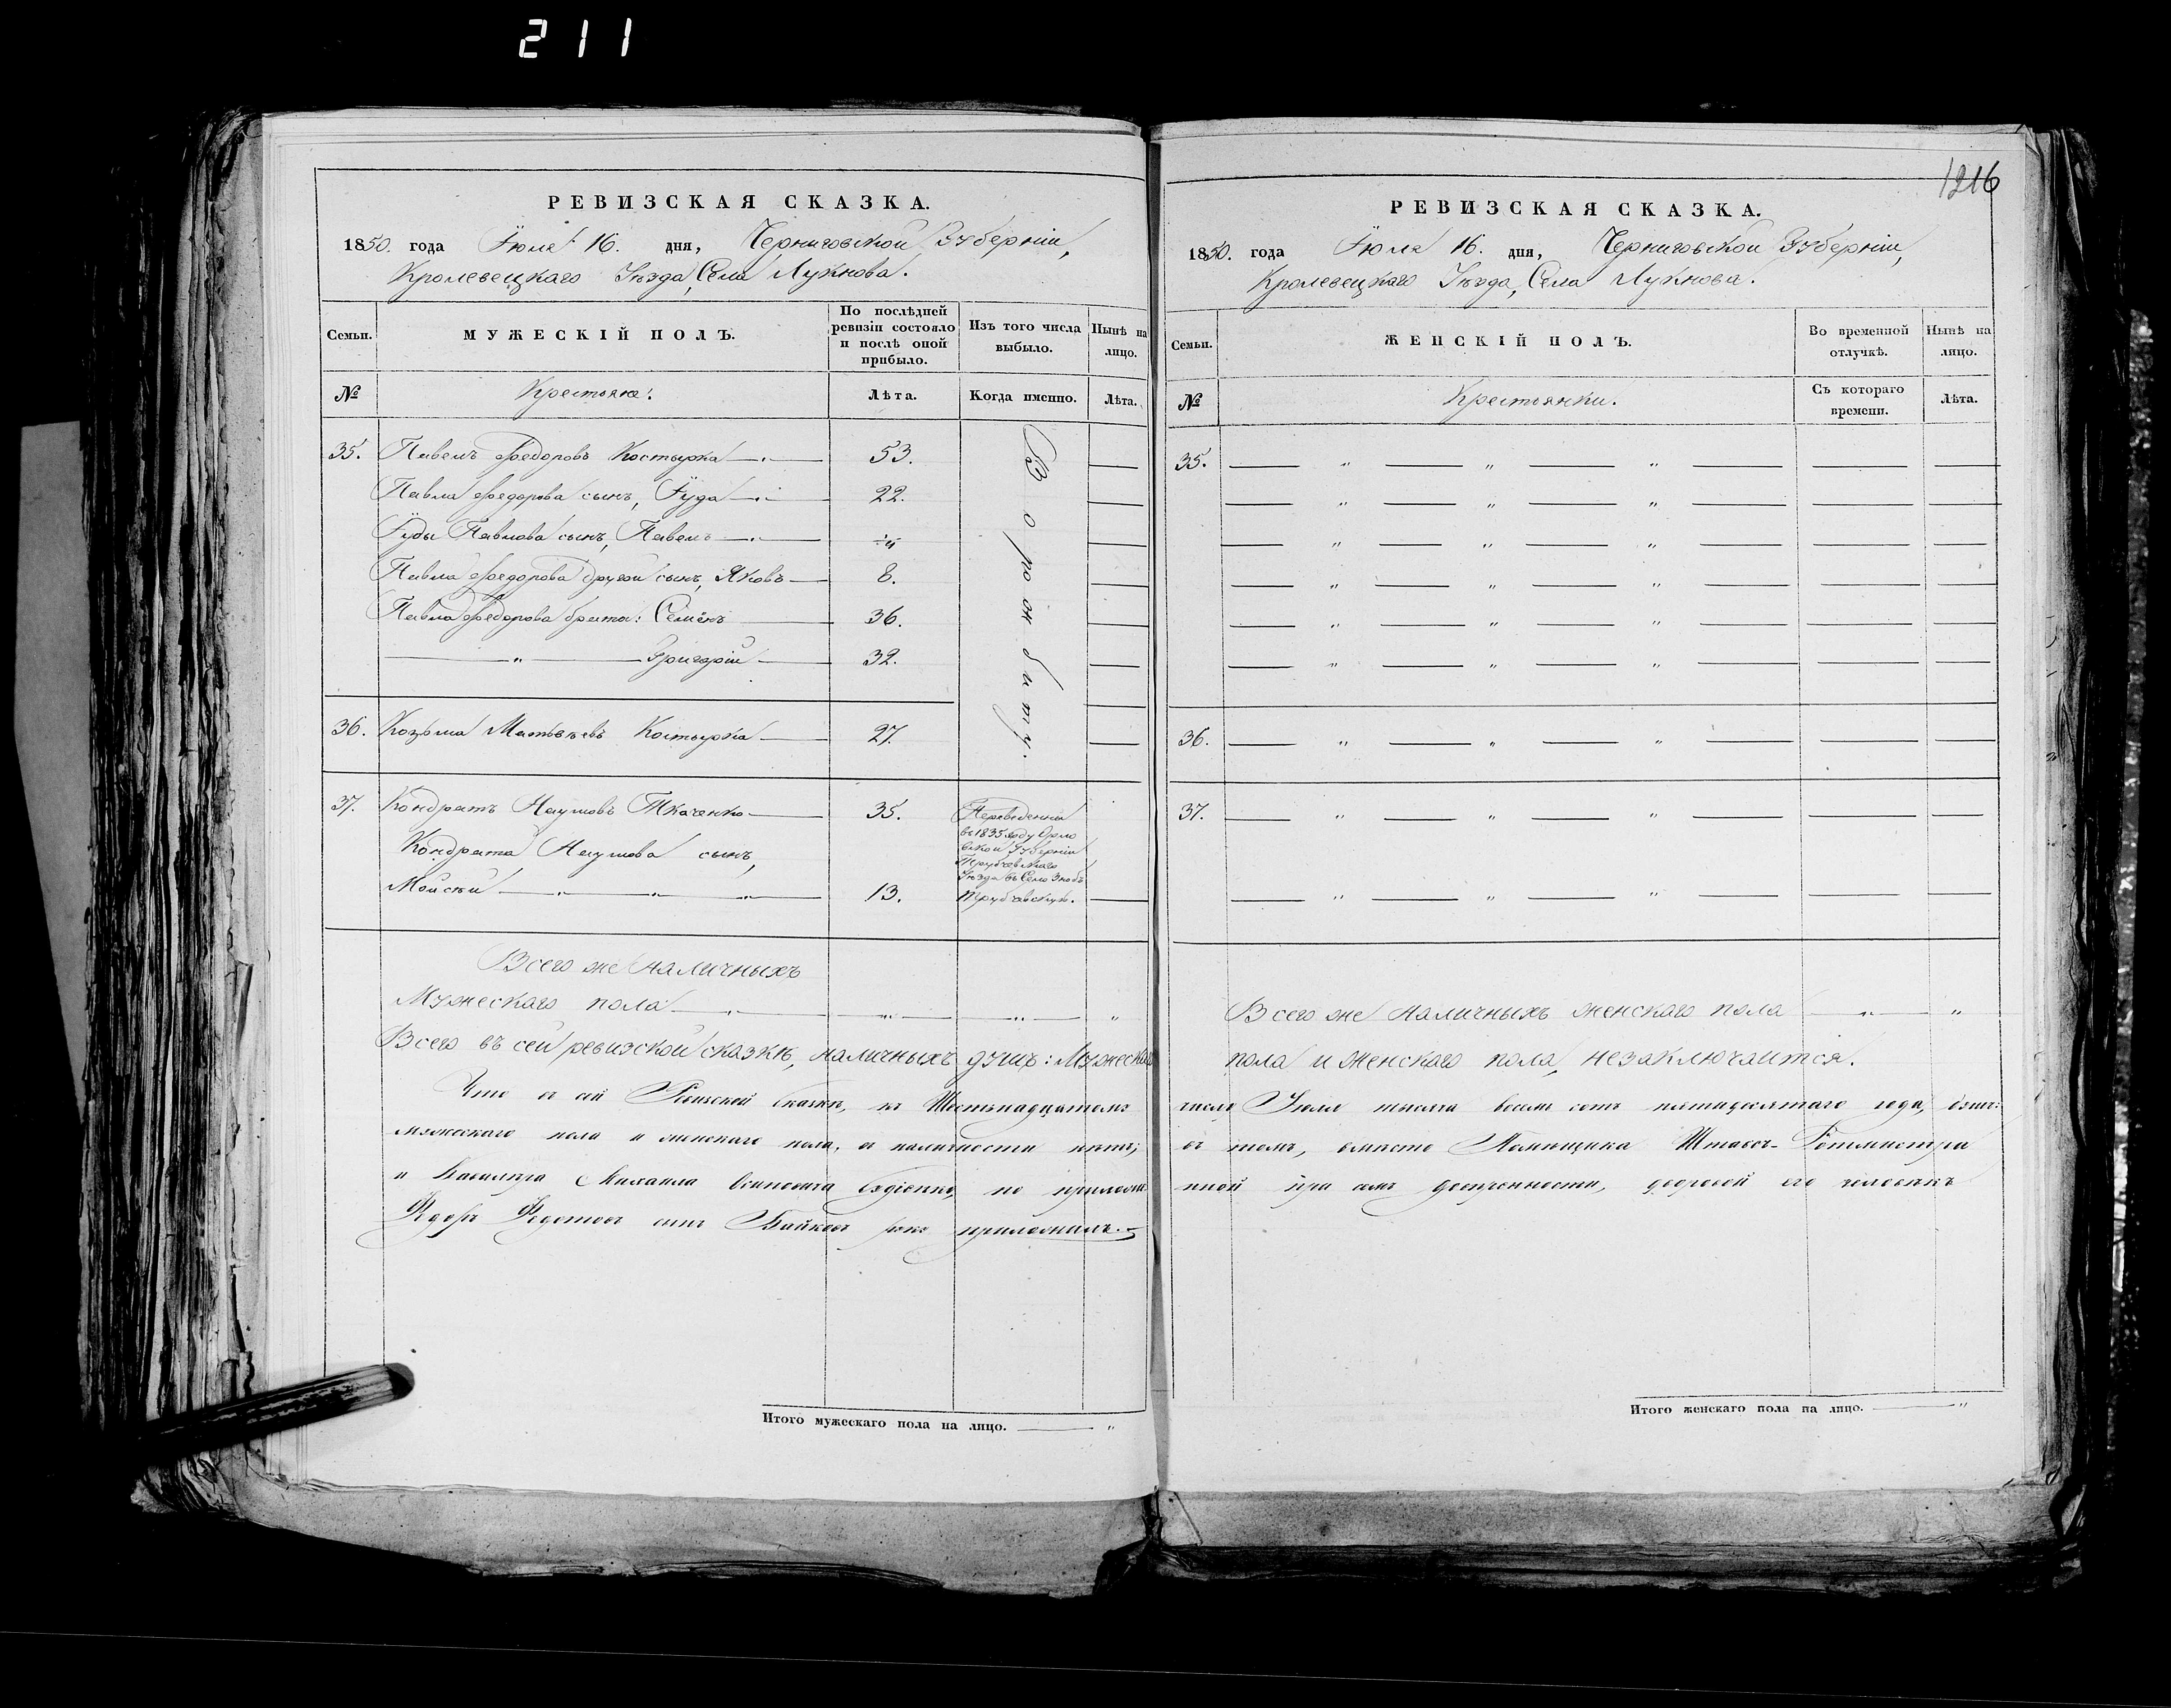 211
РЕВИЗСКАЯ СКАЗКА.
1850. года Іюля 16. дня, Черниговской Губерніи,
Кролевецкаго Уѣзда, Села Лукнова.
Семьи.
МУЖЕСКІЙ ПОЛЪ.
По послѣдней ревизіи состояло и послѣ оной прибыло.
Изъ того числа выбыло.
Нынѣ на лицо.
№
Крестьяне:
Лѣта.
Когда именно.
Лѣта.
35. Павелъ Федоровъ Костырка 53.
Павла Федорова сынъ, Іуда 22.
Іуды Павлова сынъ, Павелъ
Павла Федорова другой сынъ, Яковъ 8.
Павла Федорова брата: Семенъ 36.
" Григорій 32.
36. Козьма Матвѣевъ Костырка 27.
37. Кондратъ Наумовъ Ткаченко 35.
Кондрата Наумова сынъ,
Мойсей " " " 13.
Переведенны
въ 1835 году Орло
вской Губерніи
Трубчевскаго
Уѣзда въ Село Знобь
Трубчевскую.
Всего же наличныхъ
Мужескаго пола " " " "
Всего въ сей ревизской сказкѣ, наличныхъ душъ: Мужескаго
Что въ сей Ревизской сказкѣ, къ Шестьнадцатому
мужескаго пола и женскаго пола, въ наличности нѣтъ;
и Кавалера Михаила Осиповича Судіенко, по приложен
Федоръ Федотовъ сынъ Байковъ руку приложилъ.
Итого мужескаго пола на лицо. "
1216
РЕВИЗСКАЯ СКАЗКА.
1850. года Іюля 16. дня, Черниговской Губерніи,
Кролевецкаго Уѣзда, Села Лукнова.
Семьи.
ЖЕНСКІЙ ПОЛЪ.
Во временной отлучкѣ.
Нынѣ на лицо.
№
Крестьянки.
Съ котораго времени.
Лѣта.
35. " " "
" " "
" " "
" " "
" " "
" " "
36. " " "
37. " " "
" " "
Всего же наличныхъ женскаго пола " "
пола и женскаго пола, незаключается.
число Іюля тысяча восемь сотъ пятидесятаго года, душъ:
въ томъ, вмѣсто Помещика Штабсъ-Ротмистра
нной при семъ довѣренности, дворовой его человѣкъ
Итого женскаго пола на лицо. "